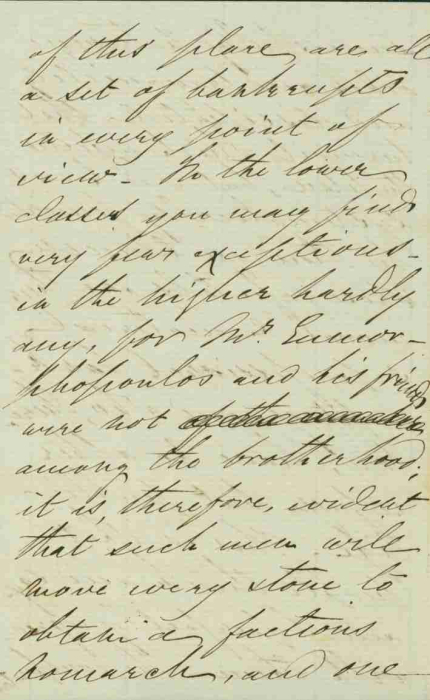 of this place, are all
a set of bankrupts
in every point of
view - In the lower
classes you may find
very few exceptions -
in the higher hardly
any, for Mr. Eumor-
phopoulos and his friends
were not
among the brotherhood;
it is, therefore, evident
that such men will
move every stone to
obtain a factious
Nomarch, and one